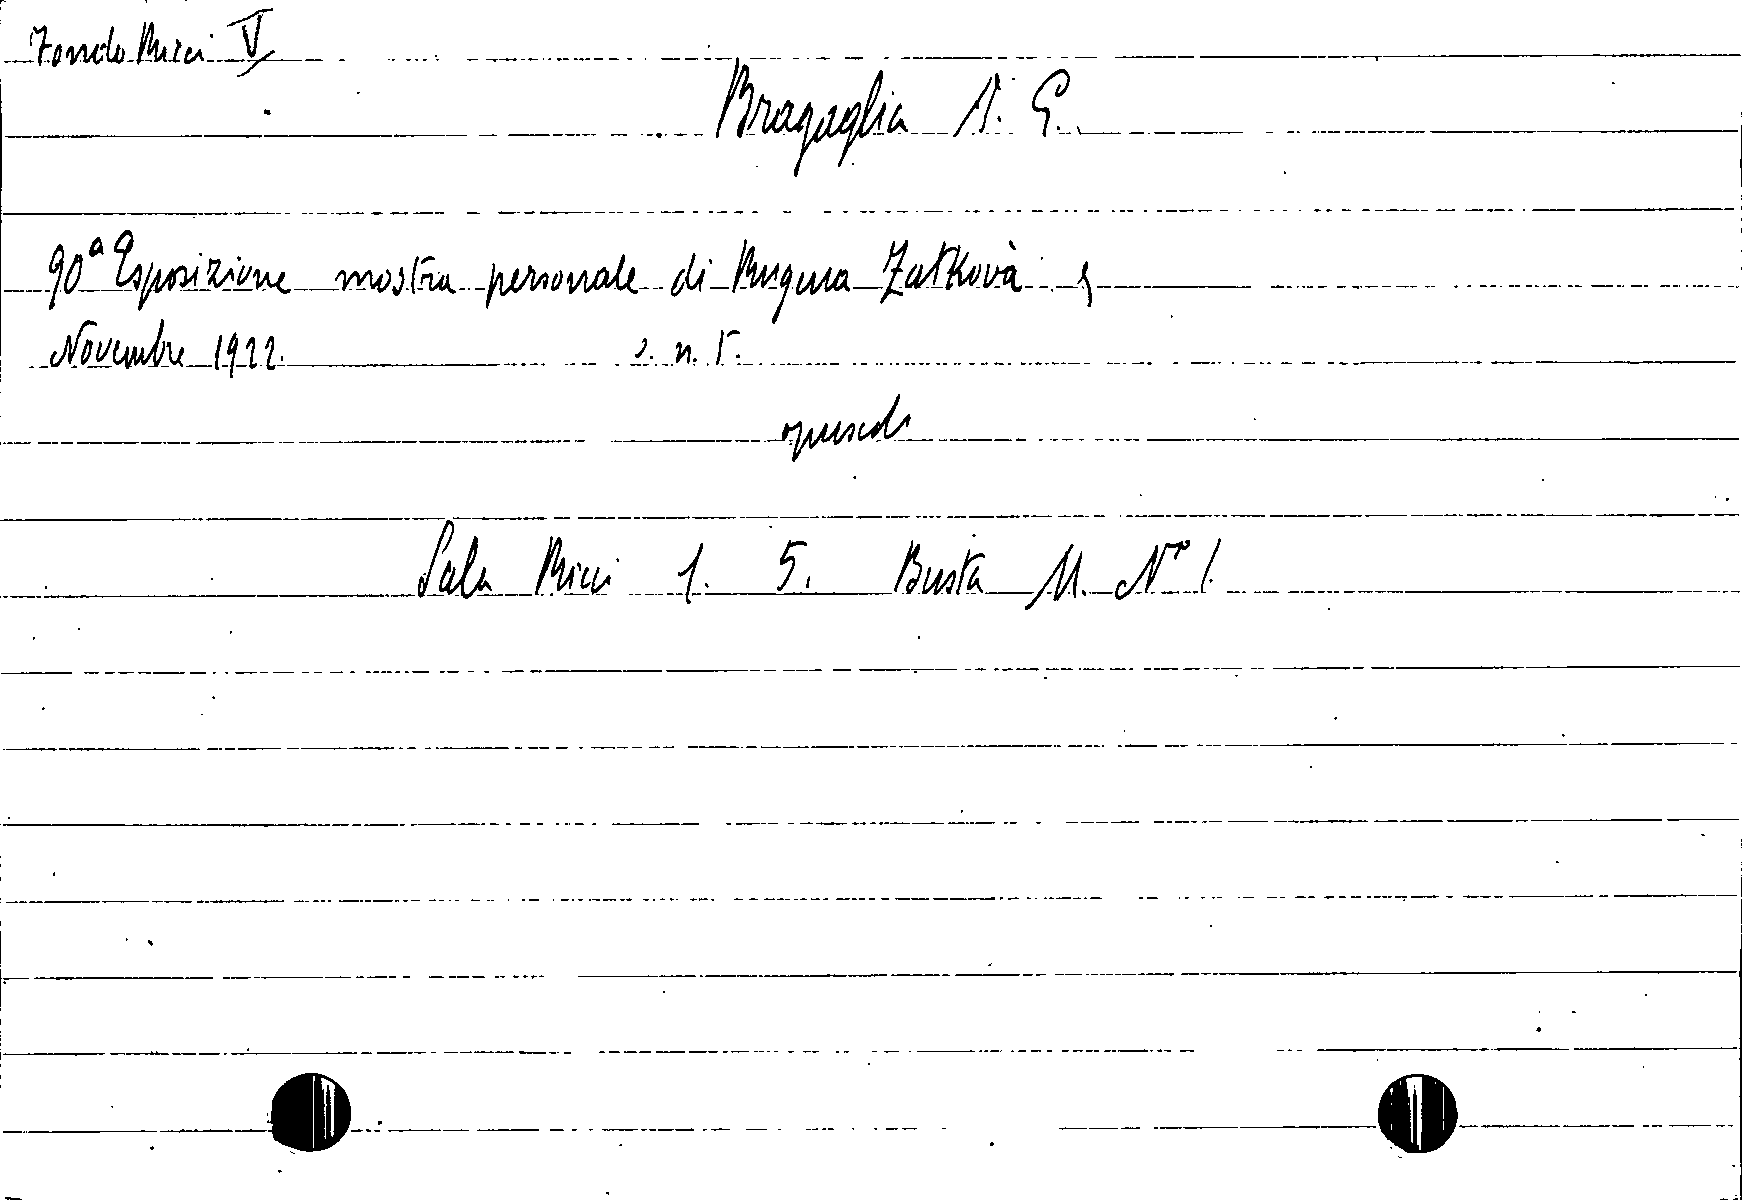 Fondo Ricci V
Bragaglia A. G.
90ª Esposizione mostra personale di Rugena Zatkovà
Novembre 1922. s. n. t.
opuscolo
Sala Ricci 1. 5. Busta M. N° 1.